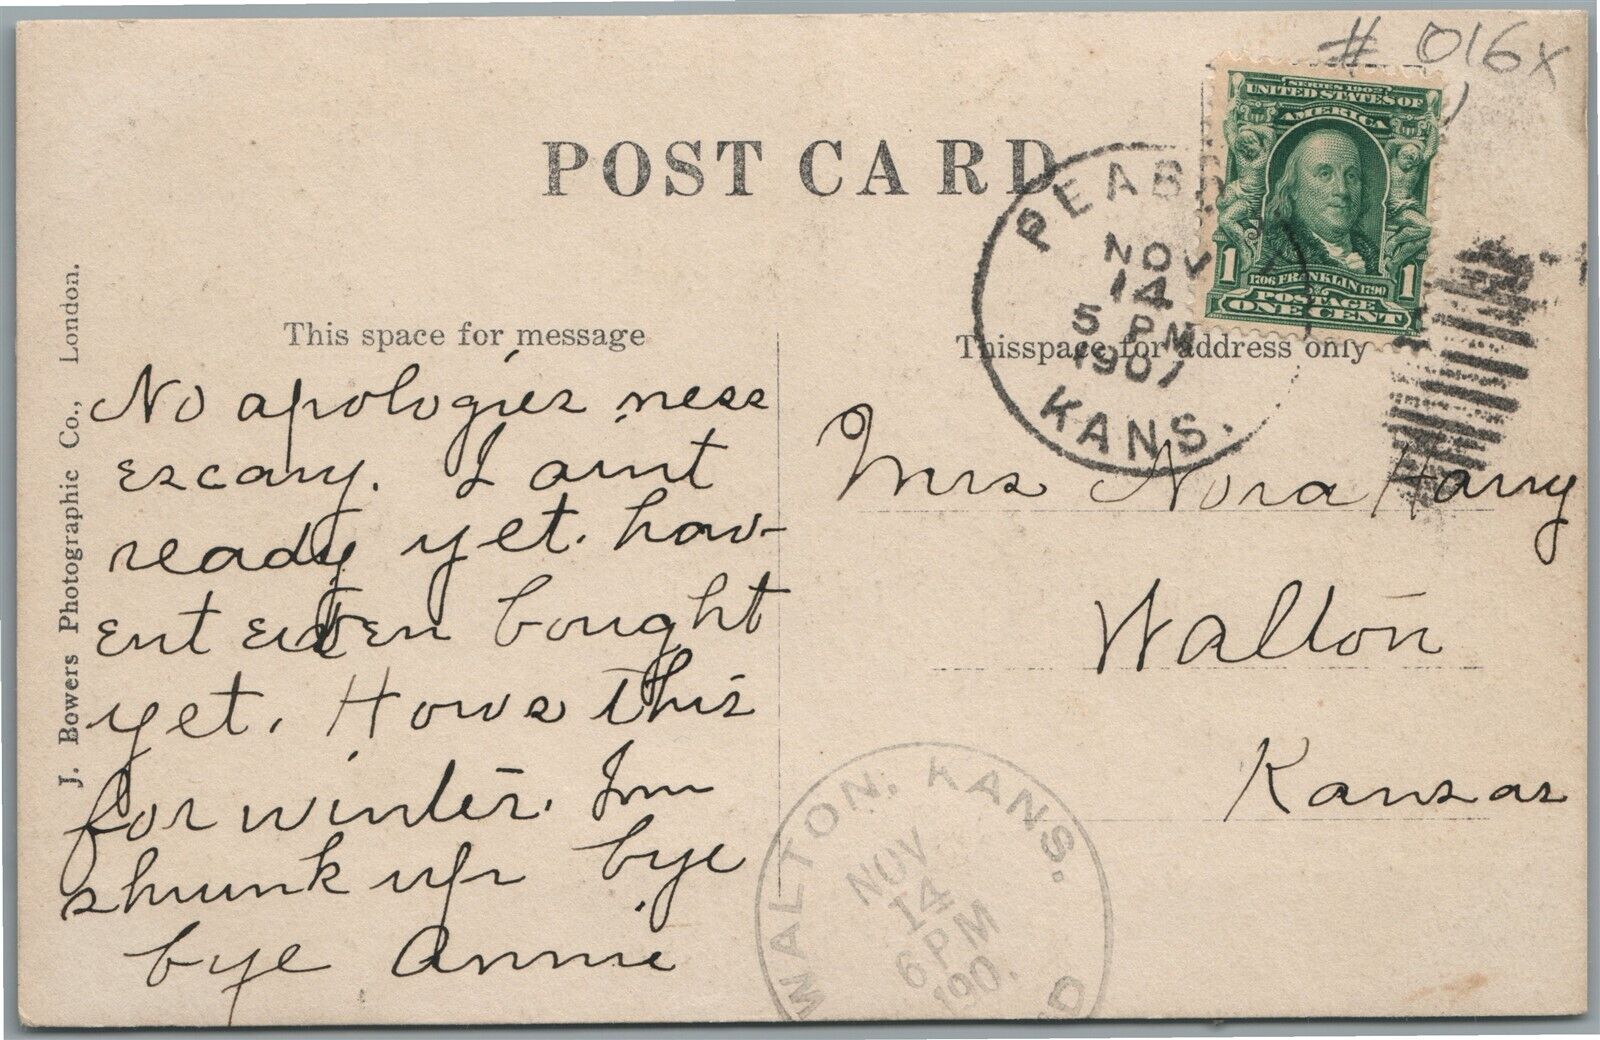 # 016x
SERIES 1902
UNITED STATES OF
AMERICA
1 1
1706 FRANKLIN 1790
POSTAGE
ONE CENT
POST CARD
PEAB
NOV
14
5 PM
1907
KANS.
J. Bowers Photographic Co., London.
This space for message
No apologies ness
escary. I aint
ready yet. hav-
ent even bought
yet. Hows this
for winter. Im
shrunk up bye
bye Annie
Thisspace for address only
Mrs Nora Harry
Walton
Kansas
WALTON, KANS.
NOV
14
6 PM
190